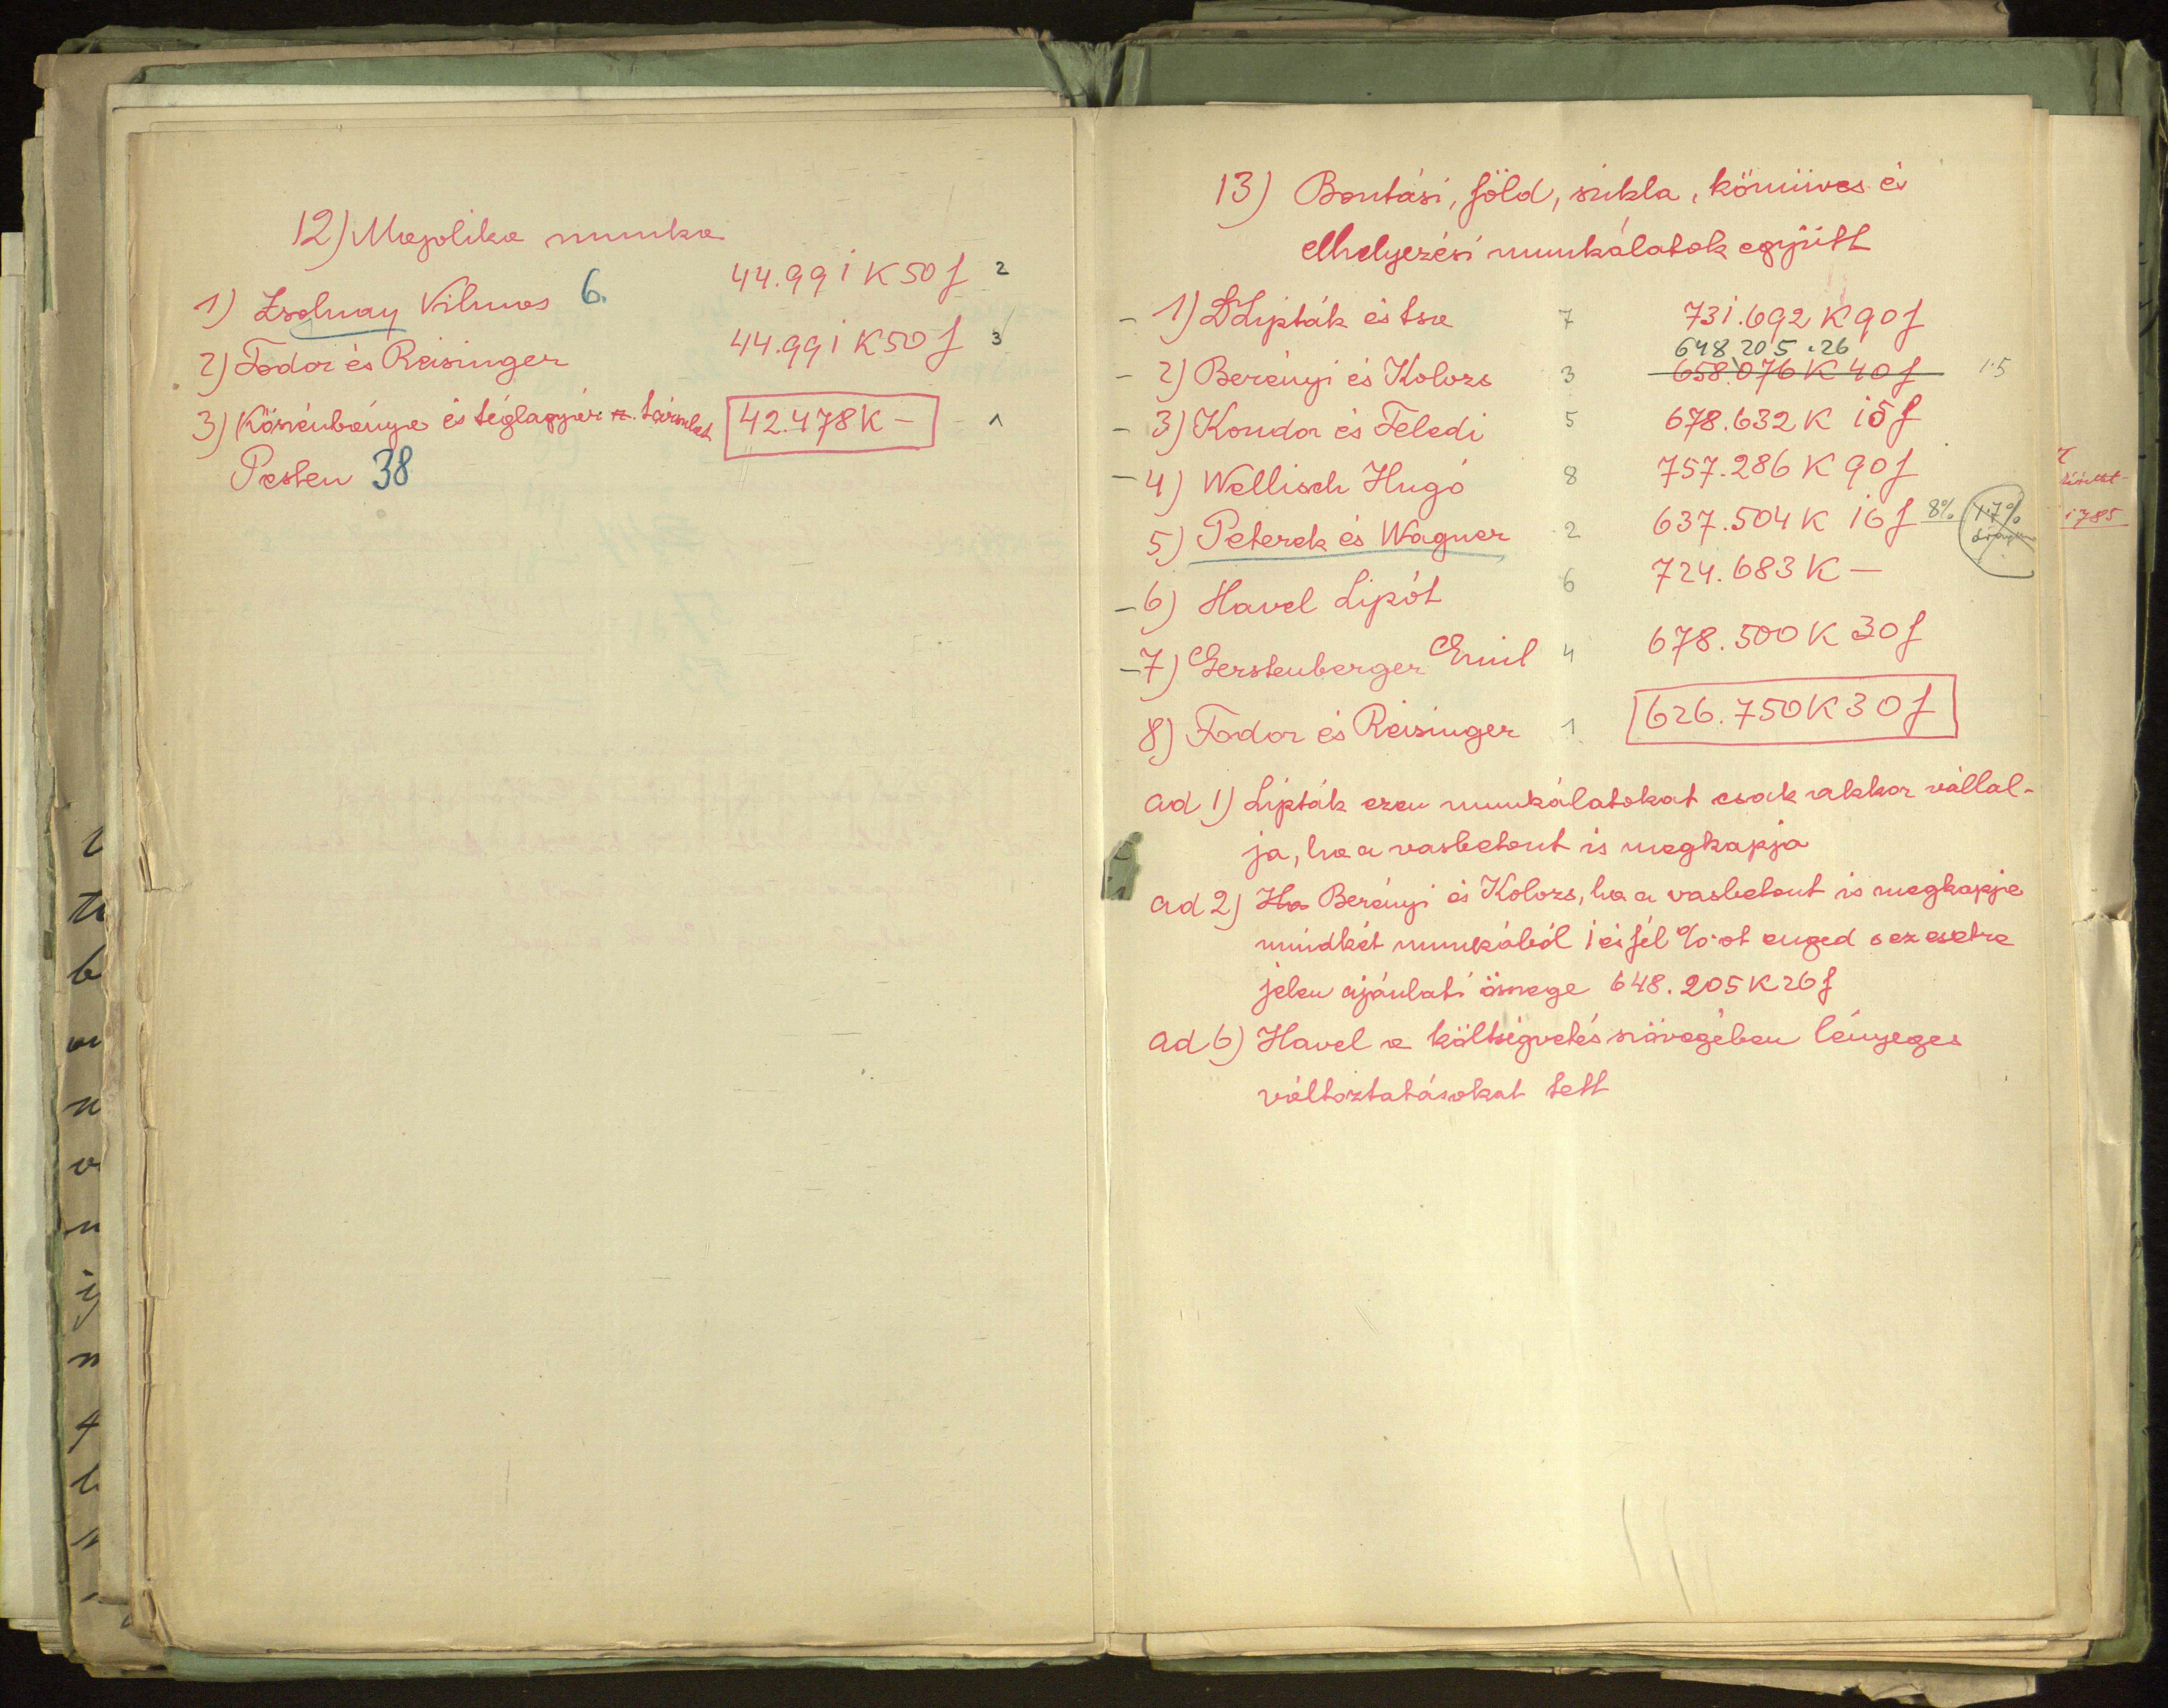 12) Majolika munka
1) Zsolnay Vilmos 6. 44.991 K 50 f 2
2) Fodor és Reisinger 44.991 K 50 f 3
3) Kőszénbánya és téglagyár r. társulat 42.478 K – 1
Pesten 38
13) Bontási, föld, szikla, kőmüves és
elhelyezési munkálatok együtt
– 1) Lipták és tsa 7 731.692 K 90 f
648 205 .26
– 2) Berényi és Kolozs 3 658.076 K 40 f 1.5
– 3) Kondor és Feledi 5 678.632 K 15 f
– 4) Wellisch Hugó 8 757.286 K 90 f
5) Peterek és Wagner 2 637.504 K 16 f 8% 1.7%
– 6) Havel Lipót 6 724.683 K –
– 7) Gerstenberger Emil 4 678.500 K 30 f
8) Fodor és Reisinger 1 626.750 K 30 f
ad 1) Lipták ezen munkálatokat csak akkor vállal-
ja, ha a vasbetont is megkapja
ad 2) Ha Berényi és Kolozs, ha a vasbetont is megkapja
mindkét munkából 1 és fél %-ot enged s ez esetre
jelen ajánlati összege 648.205 K 26 f
ad 6) Havel a költségvetés szövegében lényeges
változtatásokat tett
1785